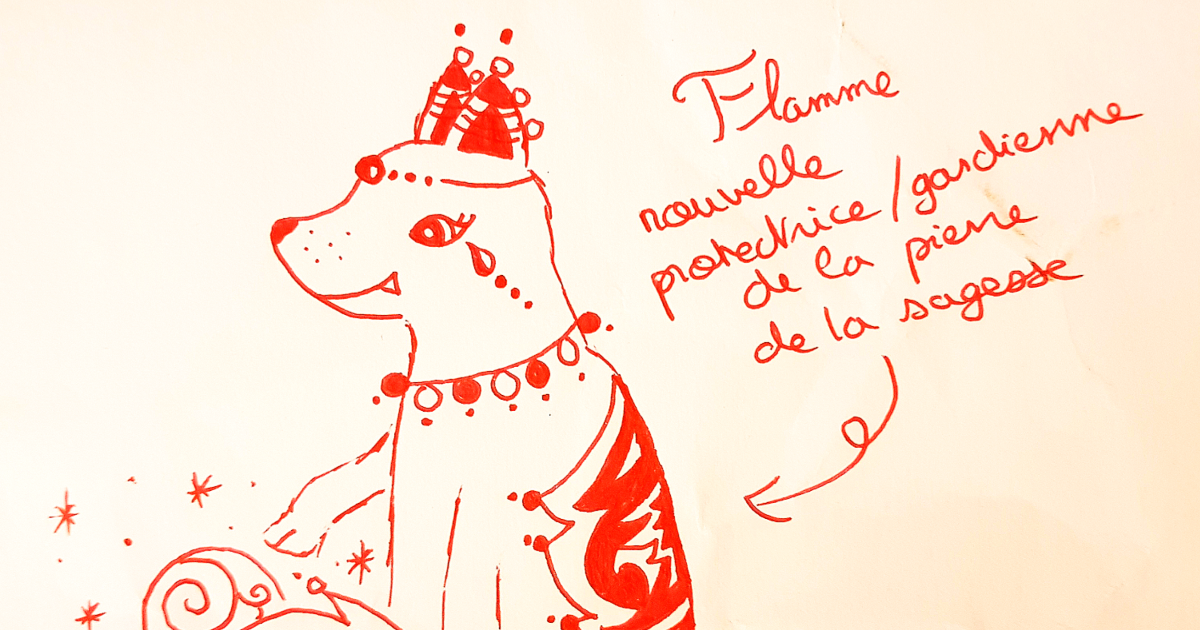 Flamme
nouvelle
protectrice/gardienne
de la pierre
de la sagesse